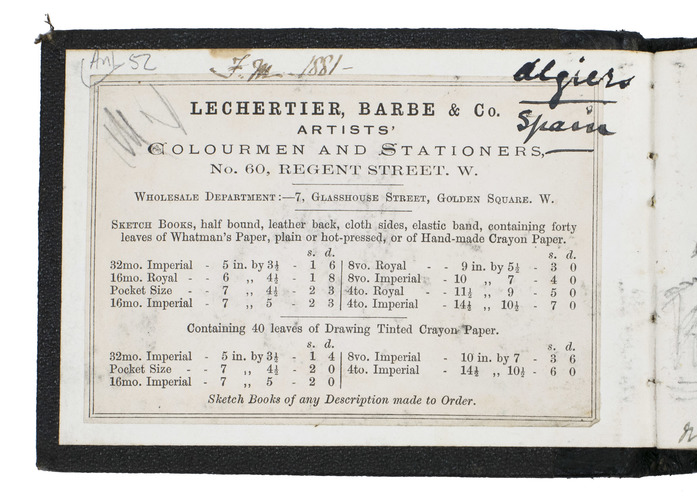 (An) 52
F. M. 1881-
Algiers
Spain
LECHERTIER, BARBE & Co.
ARTISTS'
COLOURMEN AND STATIONERS,
No. 60, REGENT STREET. W.
WHOLESALE DEPARTMENT:—7, GLASSHOUSE STREET, GOLDEN SQUARE. W.
SKETCH BOOKS, half bound, leather back, cloth sides, elastic band, containing forty
leaves of Whatman's Paper, plain or hot-pressed, or of Hand-made Crayon Paper.
s. d. s. d.
32mo. Imperial - 5 in. by 3½ - 1 6 8vo. Royal - - 9 in. by 5½ - 3 0
16mo. Royal - - 6 ,, 4½ - 1 8 8vo. Imperial - 10 ,, 7 - 4 0
Pocket Size - - 7 ,, 4½ - 2 3 4to. Royal - - 11½ ,, 9 - 5 0
16mo. Imperial - 7 ,, 5 - 2 3 4to. Imperial - 14½ ,, 10½ - 7 0
Containing 40 leaves of Drawing Tinted Crayon Paper.
s. d. s. d.
32mo. Imperial - 5 in. by 3½ - 1 4 8vo. Imperial - 10 in. by 7 - 3 6
Pocket Size - - 7 ,, 4½ - 2 0 4to. Imperial - 14½ ,, 10½ - 6 0
16mo. Imperial - 7 ,, 5 - 2 0
Sketch Books of any Description made to Order.